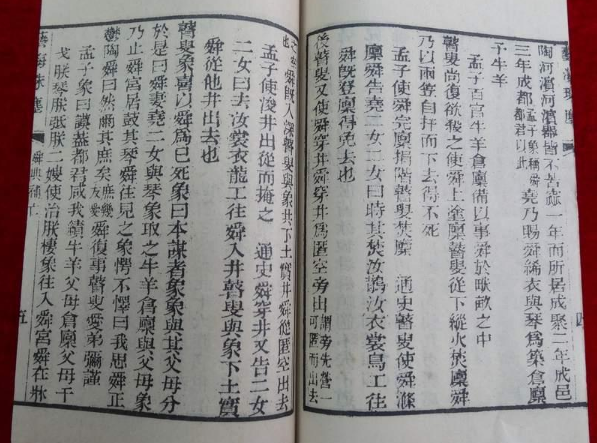 陶河濱河濱器皆不苦窳一年而所居成聚二年成邑
三年成都孟子象稱舜都君以此堯乃賜舜絺衣與琴為築倉廩
予牛羊
孟子百官牛羊倉廩備以事舜於畎畝之中
瞽叟尚復欲殺之使舜上塗廩瞽叟從下縱火焚廩舜
乃以兩笠自扞而下去得不死
孟子使舜完廩捐階瞽叟焚廩 通史瞽叟使舜滌
廩舜告堯二女二女曰時其焚汝鵲汝衣裳鳥工往
舜既登廩得免去也
後瞽叟又使舜穿井舜穿井為匿空旁出謂旁先鑿一可匿而出去
出舜既入深瞽叟與象共下土實井舜從匿空出去
孟子使浚井出從而掩之 通史舜穿井又告二女
二女曰去汝裳衣龍工往舜入井瞽叟與象下土實
舜從他井出去也
瞽叟象喜以舜為已死象曰本謀者象象與其父母分
於是曰舜妻堯二女與琴象取之牛羊倉廩與父母象
乃止舜宮居鼓其琴舜往見之象愕不懌曰我思舜正
鬱陶舜曰然爾其庶矣庶幾友愛舜復事瞽叟愛弟彌謹
孟子象曰謨蓋都君咸我績牛羊父母倉廩父母干
戈朕琴朕弤朕二嫂使治朕棲象往入舜宮舜在牀
藝海珠塵 舜典補亡 五